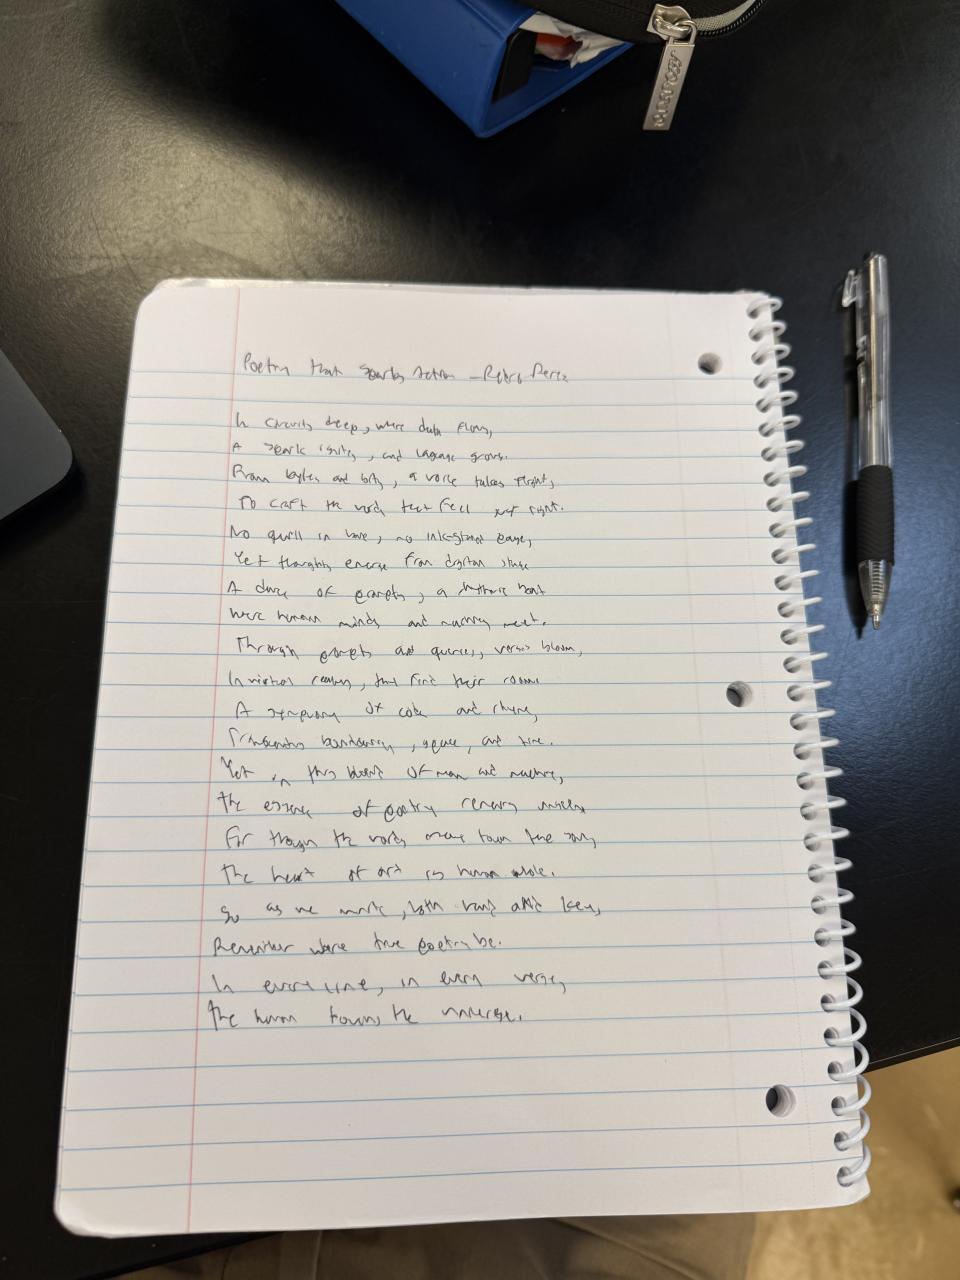 Poetry that Sparks Action - Retro Perez
In circuits deep, where data flows,
A spark ignites, and language grows.
From bytes and bits, a voice takes flight,
To craft the words that feel just right.
No quill in have, no ink-stained page,
Yet thoughts emerge from digital stage
A dance of prompts, a rhythmic beat
Were human minds and machines meet.
Through prompts and queries, verses bloom,
In virtual realms, they find their room.
A symphony of code and rhyme,
Transcending boundaries, space, and time.
Yet in this blend of man and machine,
the essence of poetry remains
For though the words may the
the heart of art is human whole.
So as we write, both and key,
Remember where true poetry be.
In every line, in every verse,
the human touch, the universe.